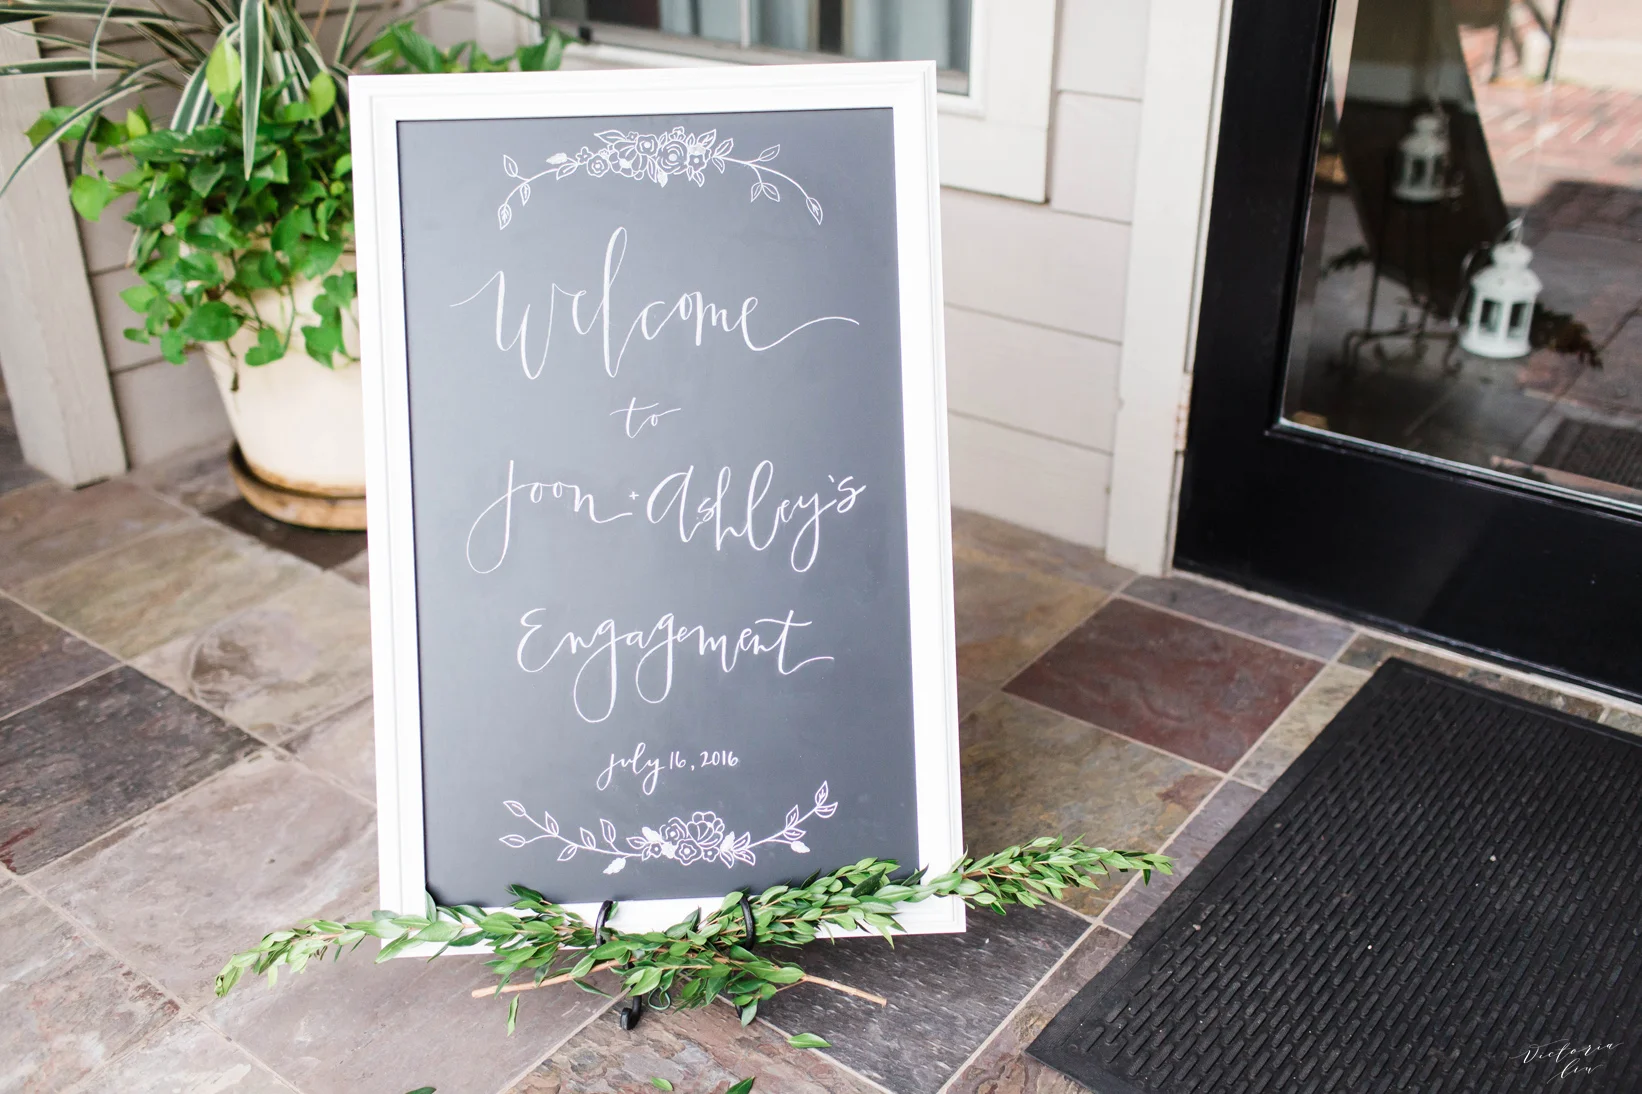 Welcome
to
Joon + Ashley's
Engagement
July 16, 2016
Victoria
Liu